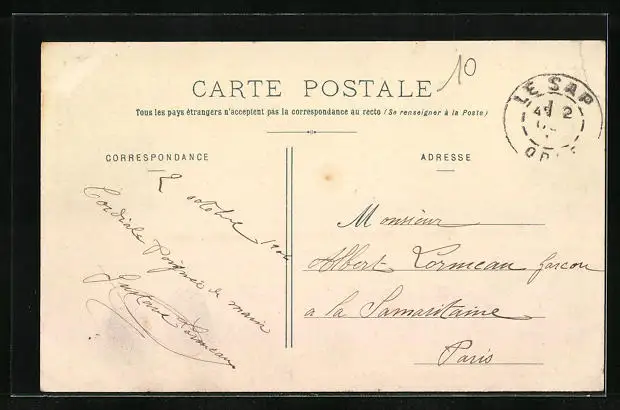 CARTE POSTALE
10
Tous les pays étrangers n'acceptent pas la correspondance au recto (Se renseigner à la Poste)
LE SAP
CORRESPONDANCE
2 octobre 190
Cordiale Poignée de main
Gustave Lormeau
ADRESSE
Monsieur
Albert Lormeau garcon
a la Samaritaine
Paris